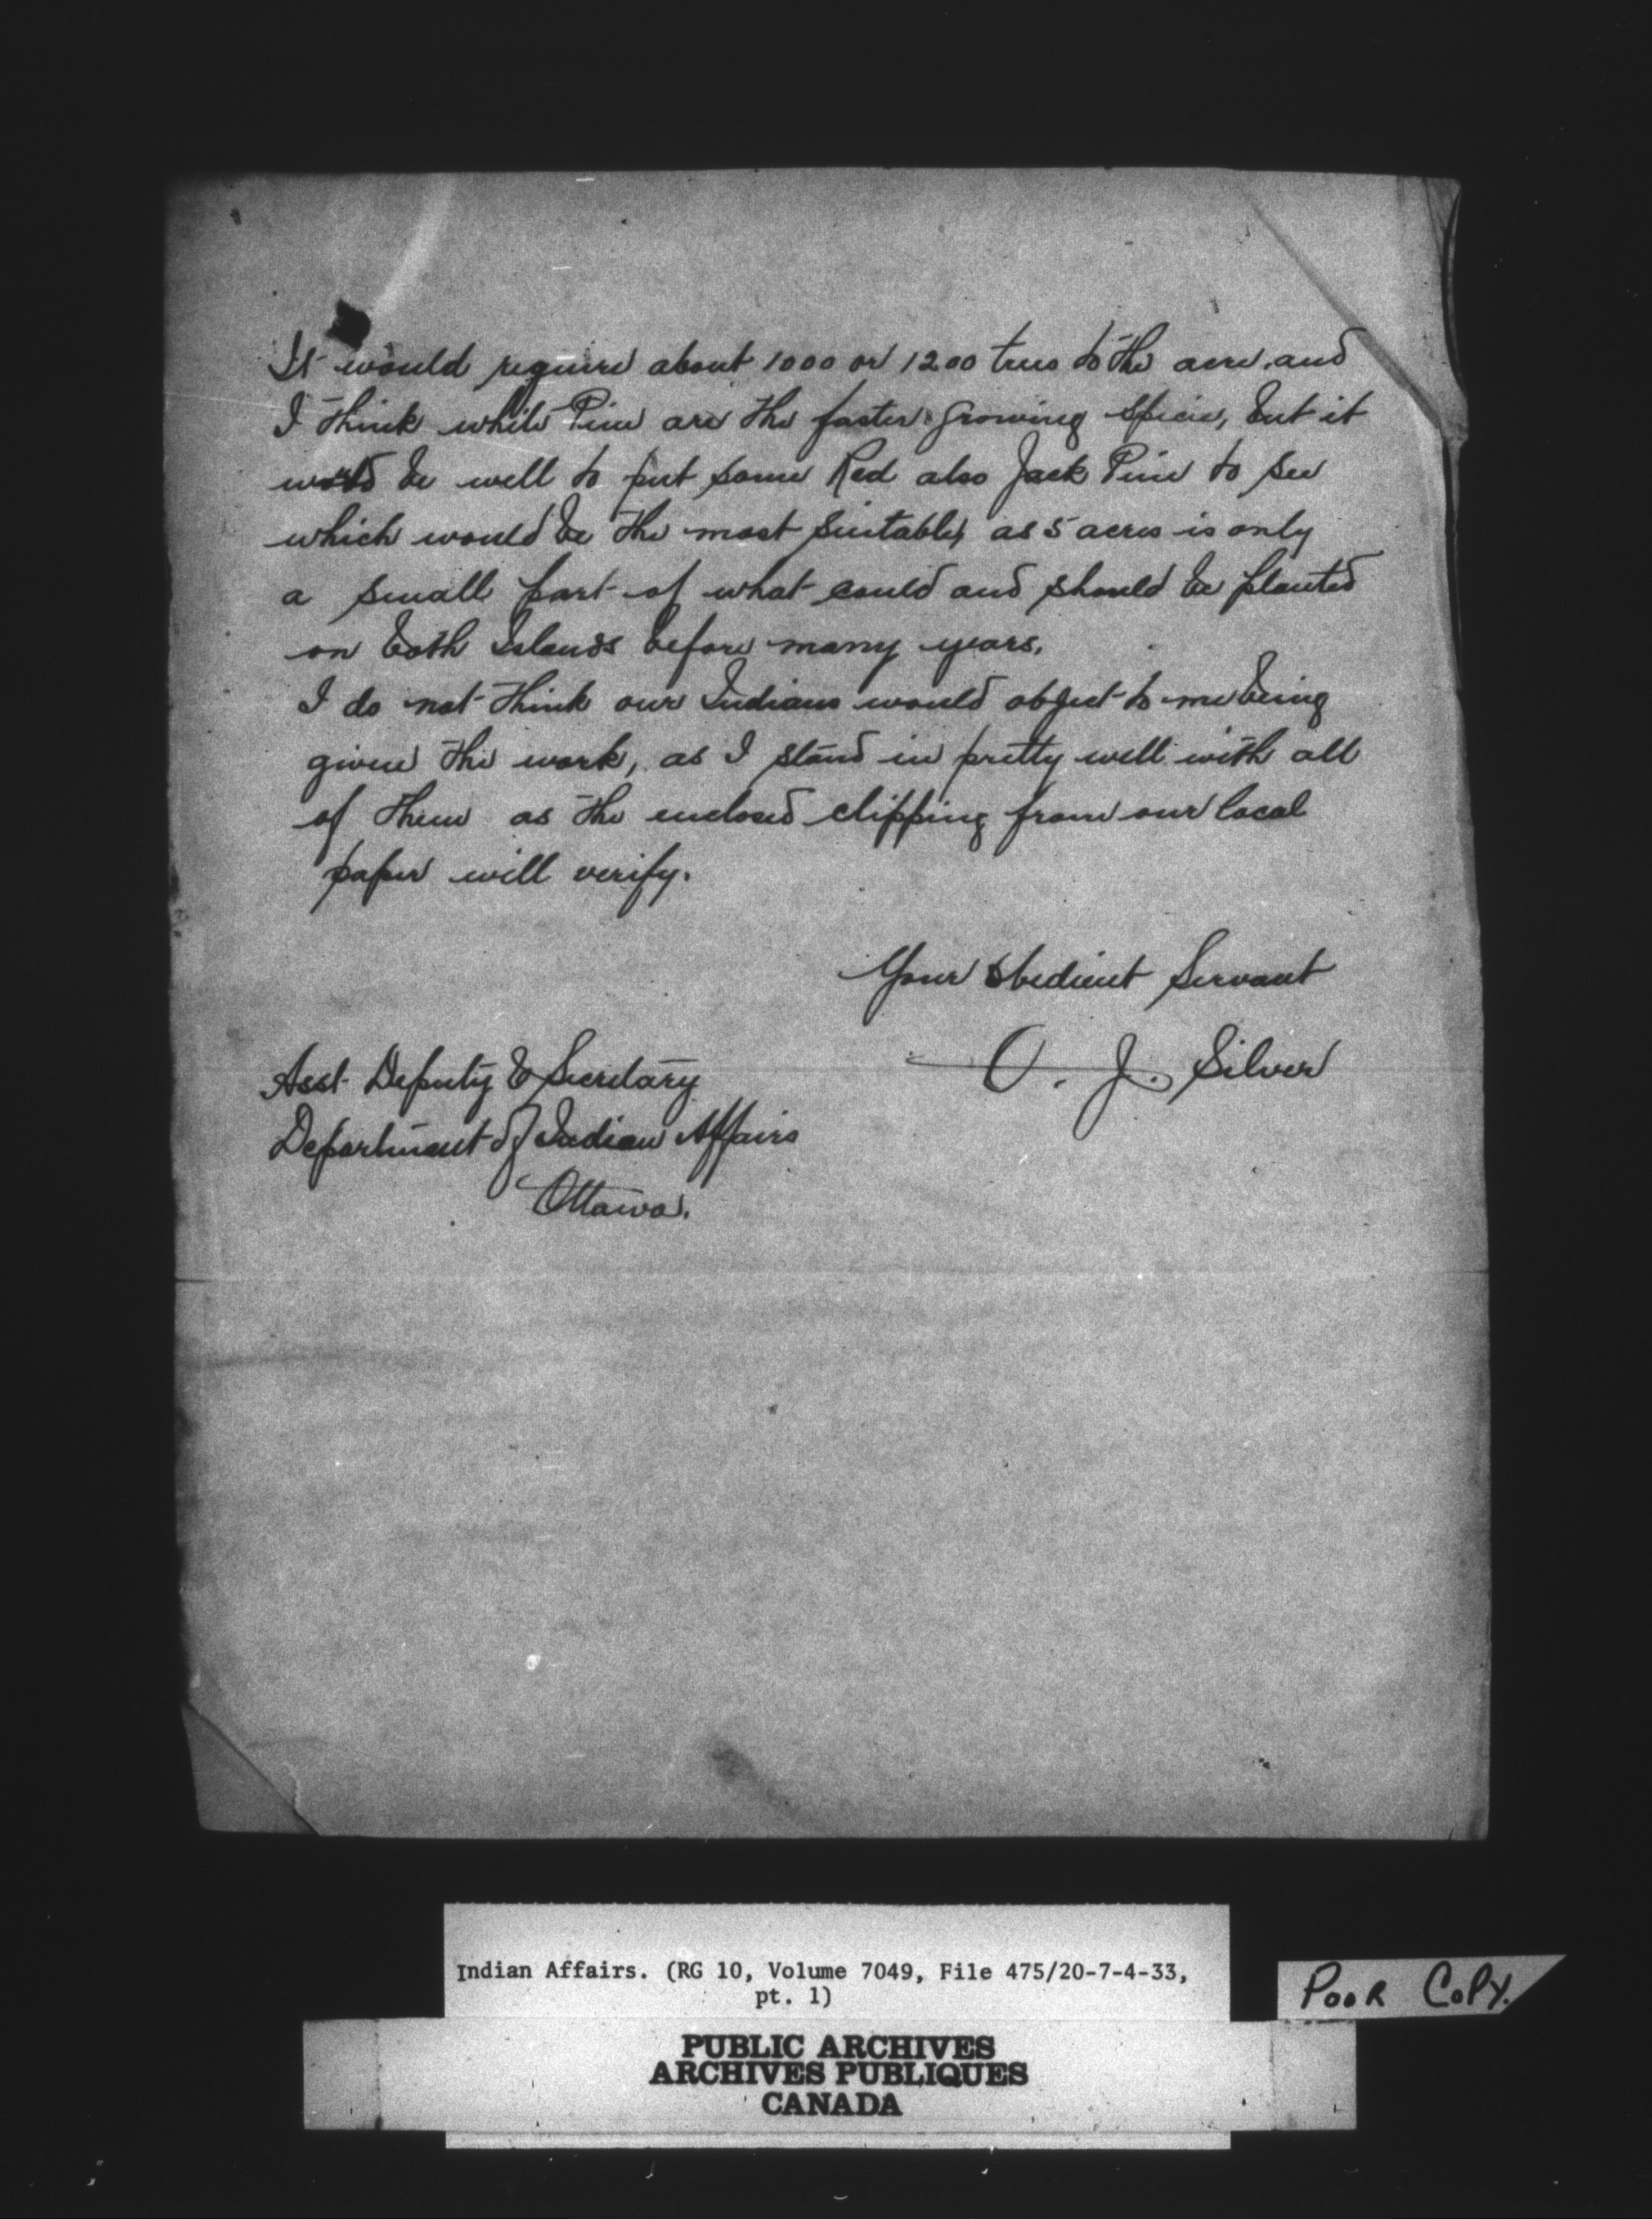 It would require about 1000 or 1200 trees to the acre, and
I think white Pine are the faster growing specie, but it
would be well to put some Red also Jack Pine to see
which would be the most suitable, as 5 acres is only
a small part of what could and should be planted
on both Islands before many years.
I do not think our Indians would object to me being
given the work, as I stand in pretty well with all
of them as the enclosed clipping from our local
paper will verify.
Your obedient Servant
O. J. Silver
Asst Deputy & Secretary
Department of Indian Affairs
Ottawa.
Indian Affairs. (RG 10, Volume 7049, File 475/20-7-4-33,
pt. 1)
POOR COPY.
PUBLIC ARCHIVES
ARCHIVES PUBLIQUES
CANADA